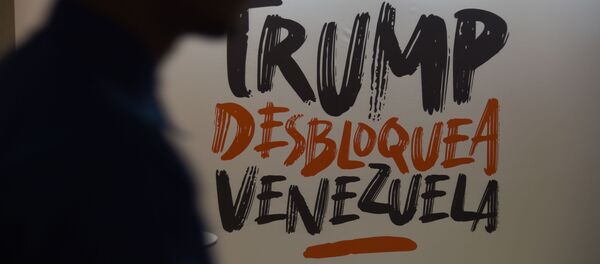 TRUMP
DESBLOQUEA
VENEZUELA